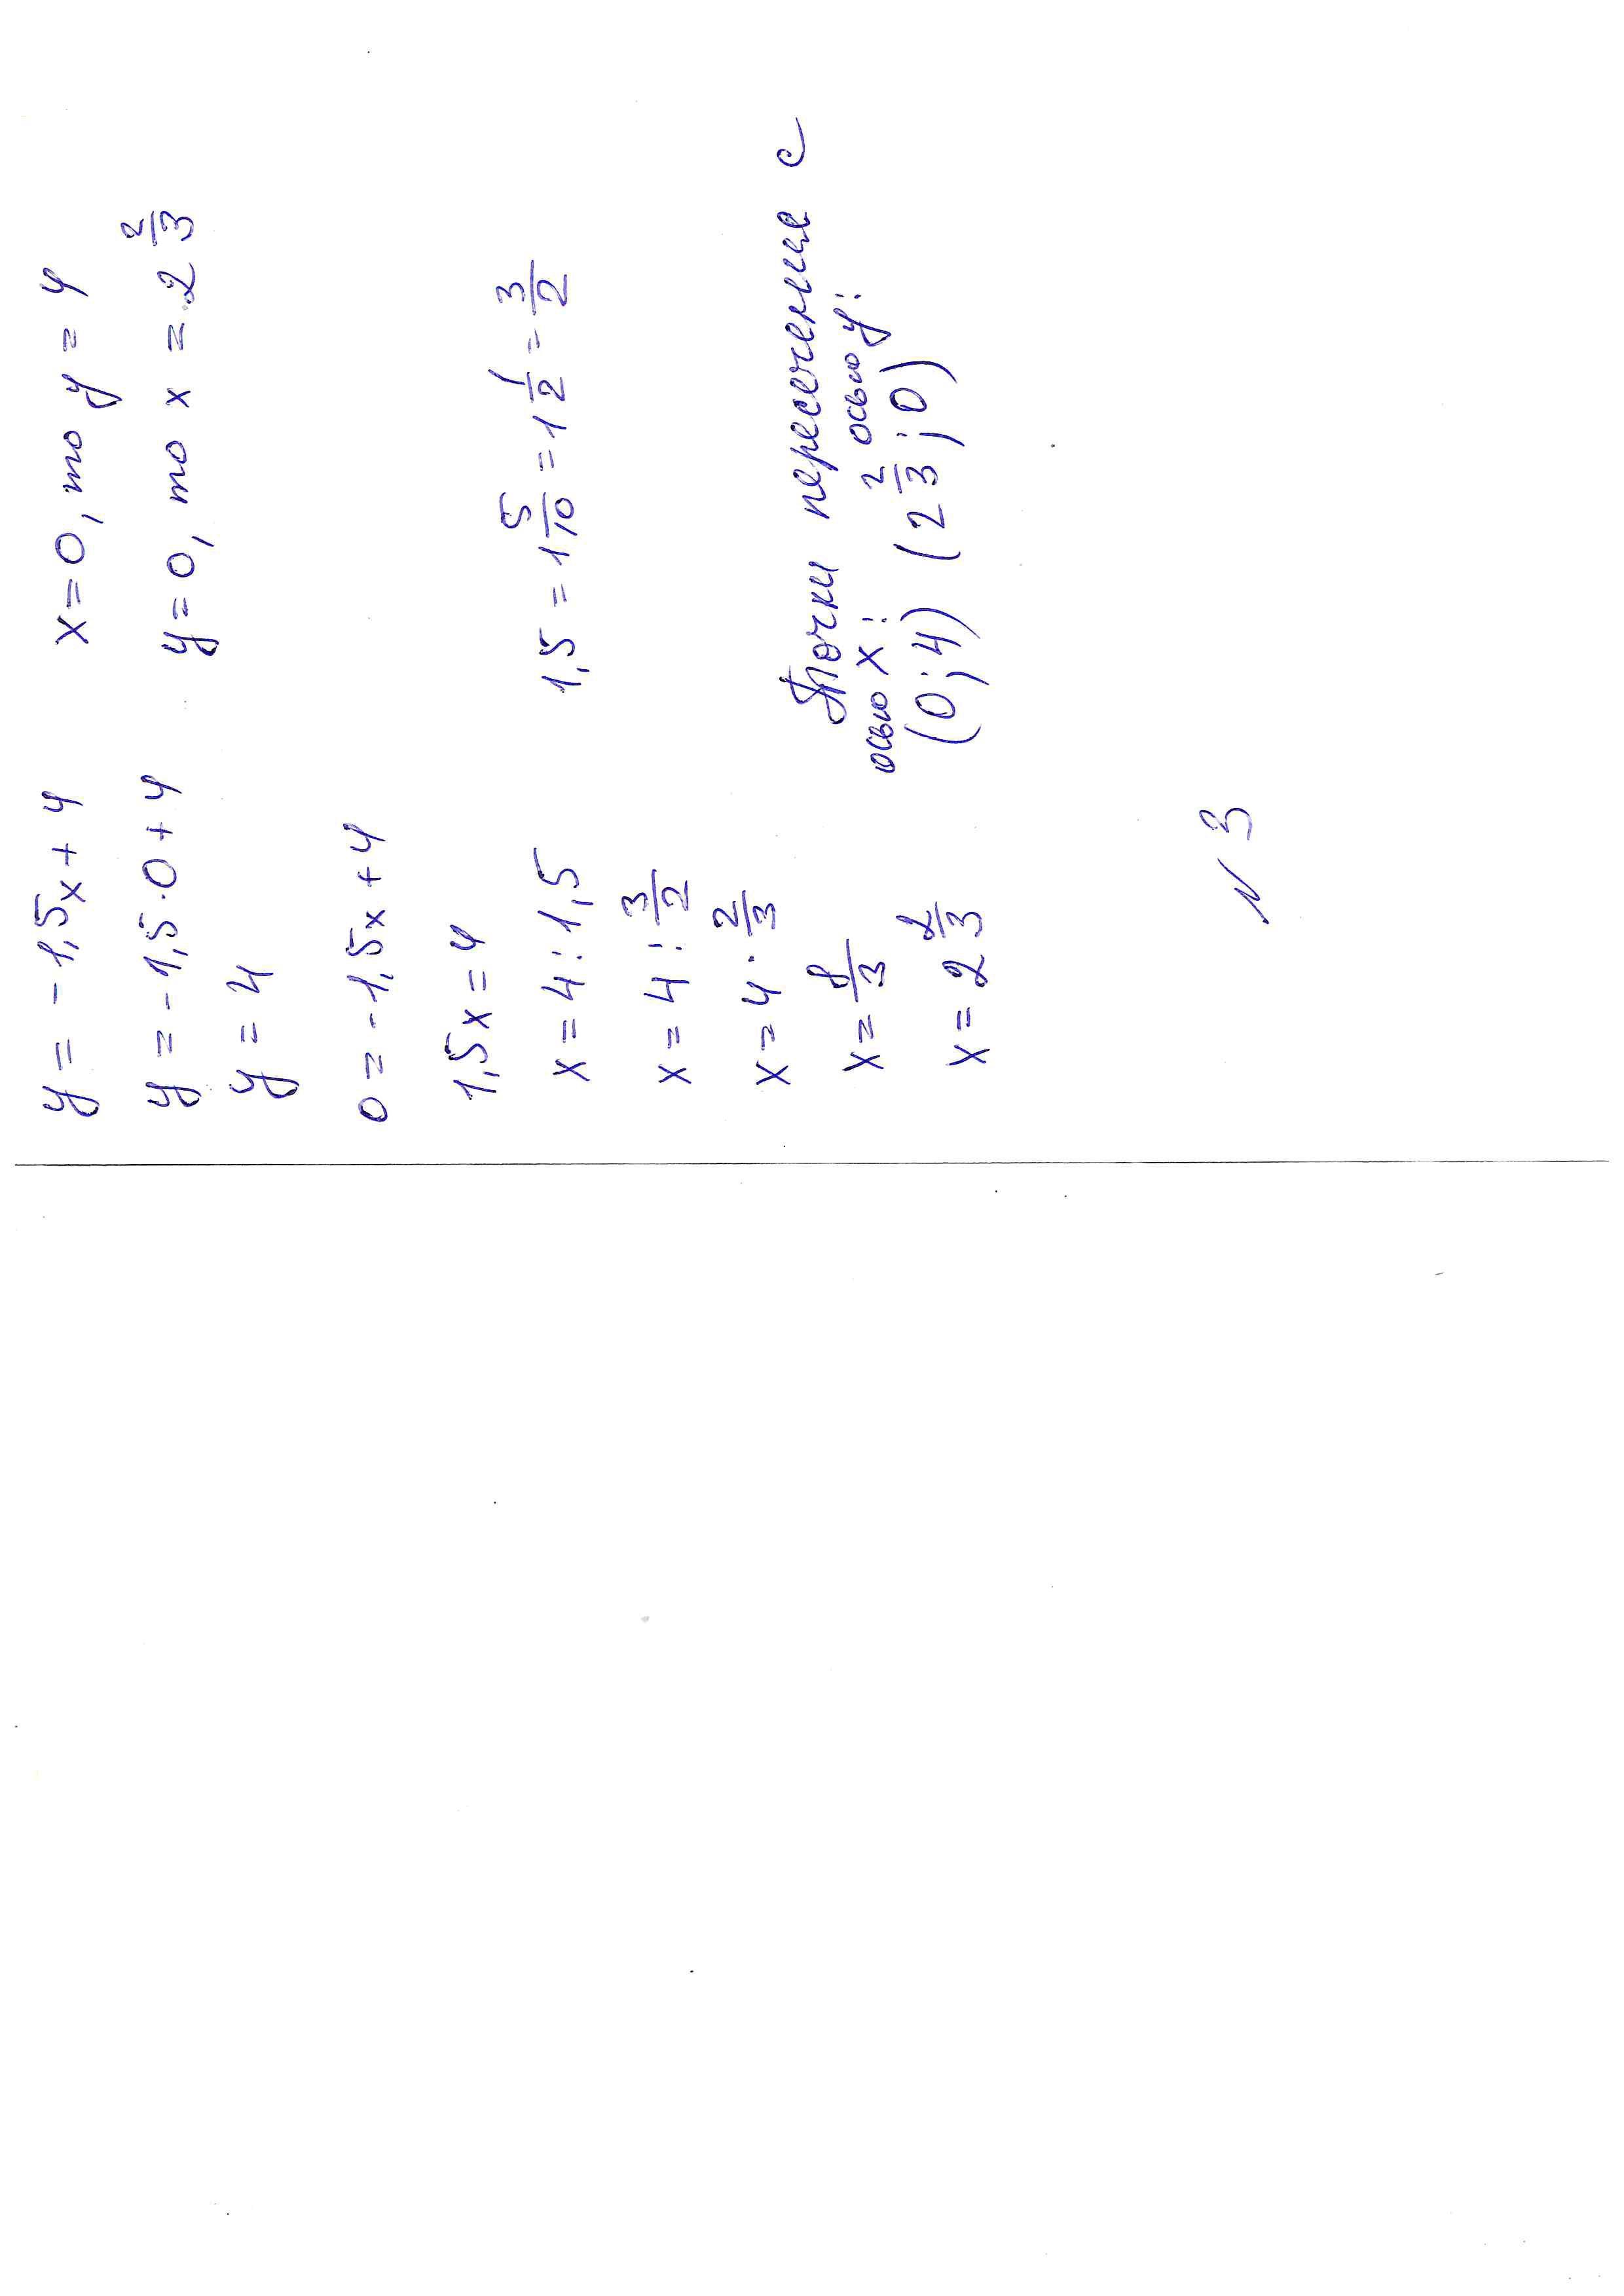 y = -1,5x + 4
y = -1,5 · 0 + 4
y = 4
0 = -1,5x + 4
1,5x = 4
x = 4 : 1,5
x = 4 : 3/2
x = 4 · 2/3
x = 8/3
x = 2 2/3
x = 0, то y = 4
y = 0, то x = 2 2/3
1,5 = 1 5/10 = 1 1/2 = 3/2
Точки пересечение с
осью x: осью y:
(0; 4) (2 2/3; 0)
N 3